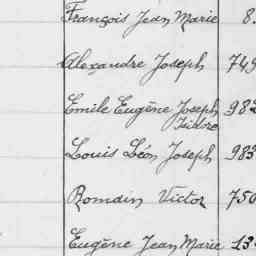 François Jean Marie 8
Alexandre Joseph 749
Emile Eugène Joseph 982
Isidore
Louis Léon Joseph 983
Romain Victor 750
Eugène Jean Marie 13